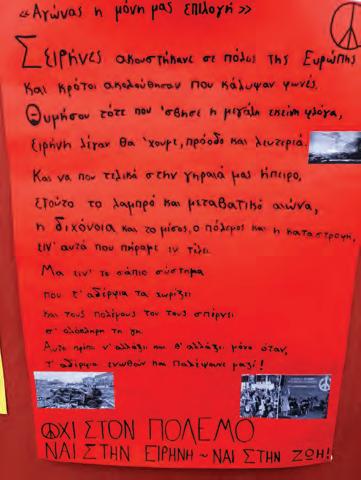 «Αγώνας η μόνη μας επιλογή»
Σειρήνες ακουστήκανε σε πόλεις της Ευρώπης
Και κρότοι ακολούθησαν που κάλυψαν φωνές.
Θυμήσου τότε που 'σβησε η μεγάλη εκείνη φλόγα,
ειρήνη λέγαν θα 'χουμε, πρόοδο και λευτεριά.
Και να που τελικά στην γηραιά μας ήπειρο,
ετούτο το λαμπρό και μεταβατικό αιώνα,
η διχόνοια και το μίσος, ο πόλεμος και η καταστροφή,
ειν' αυτά που πήραμε εν τέλει.
Μα ειν' το σάπιο σύστημα
που τ' αδέρφια τα χωρίζει
και τους πολέμους του τους σπέρνει
σ' ολόκληρη τη γη.
Αυτό πρέπει ν' αλλάξει και θ' αλλάξει μόνο όταν,
τ' αδέρφια ενωθούν και παλέψουνε μαζί!
ΟΧΙ ΣΤΟΝ ΠΟΛΕΜΟ
ΝΑΙ ΣΤΗΝ ΕΙΡΗΝΗ ~ ΝΑΙ ΣΤΗΝ ΖΩΗ!